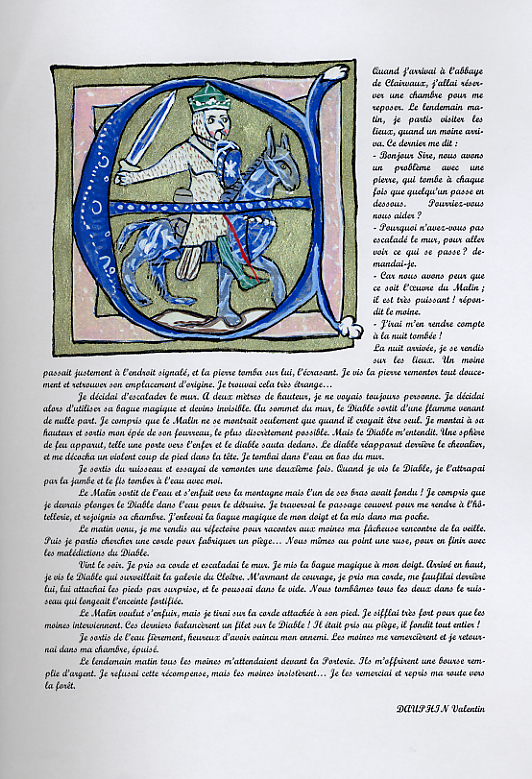 Quand j'arrivai à l'abbaye
de Clairvaux, j'allai réser-
ver une chambre pour me
reposer. Le lendemain ma-
tin, je partis visiter les
lieux, quand un moine arri-
va. Ce dernier me dit :
- Bonjour Sire, nous avons
un problème avec une
pierre, qui tombe à chaque
fois que quelqu'un passe en
dessous. Pourriez-vous
nous aider ?
- Pourquoi n'avez-vous pas
escaladé le mur, pour aller
voir ce qui se passe ? de-
mandai-je.
- Car nous avons peur que
ce soit l'œuvre du Malin ;
il est très puissant ! répon-
dit le moine.
- J'irai m'en rendre compte
à la nuit tombée !
La nuit arrivée, je se rendis
sur les lieux. Un moine
passait justement à l'endroit signalé, et la pierre tomba sur lui, l'écrasant. Je vis la pierre remonter tout douce-
ment et retrouver son emplacement d'origine. Je trouvai cela très étrange...
Je décidai d'escalader le mur. A deux mètres de hauteur, je ne voyais toujours personne. Je décidai
alors d'utiliser sa bague magique et devins invisible. Au sommet du mur, le Diable sortit d'une flamme venant
de nulle part. Je compris que le Malin ne se montrait seulement que quand il croyait être seul. Je montai à sa
hauteur et sortis mon épée de son fourreau, le plus discrètement possible. Mais le Diable m'entendit. Une sphère
de feu apparut, telle une porte vers l'enfer et le diable sauta dedans. Le diable réapparut derrière le chevalier,
et me décocha un violent coup de pied dans la tête. Je tombai dans l'eau en bas du mur.
Je sortis du ruisseau et essayai de remonter une deuxième fois. Quand je vis le Diable, je l'attrapai
par la jambe et le fis tomber à l'eau avec moi.
Le Malin sortit de l'eau et s'enfuit vers la montagne mais l'un de ses bras avait fondu ! Je compris que
je devrais plonger le Diable dans l'eau pour le détruire. Je traversai le passage couvert pour me rendre à l'hô-
tellerie, et rejoignis sa chambre. J'enlevai la bague magique de mon doigt et la mis dans ma poche.
Le matin venu, je me rendis au réfectoire pour raconter aux moines ma fâcheuse rencontre de la veille.
Puis je partis chercher une corde pour fabriquer un piège... Nous mîmes au point une ruse, pour en finir avec
les malédictions du Diable.
Vint le soir. Je pris sa corde et escaladai le mur. Je mis la bague magique à mon doigt. Arrivé en haut,
je vis le Diable qui surveillait la galerie du Cloître. M'armant de courage, je pris ma corde, me faufilai derrière
lui, lui attachai les pieds par surprise, et le poussai dans le vide. Nous tombâmes tous les deux dans le ruis-
seau qui longeait l'enceinte fortifiée.
Le Malin voulut s'enfuir, mais je tirai sur la corde attachée à son pied. Je sifflai très fort pour que les
moines interviennent. Ces derniers balancèrent un filet sur le Diable ! Il était pris au piège, il fondit tout entier !
Je sortis de l'eau fièrement, heureux d'avoir vaincu mon ennemi. Les moines me remercièrent et je retour-
nai dans ma chambre, épuisé.
Le lendemain matin tous les moines m'attendaient devant la Porterie. Ils m'offrirent une bourse rem-
plie d'argent. Je refusai cette récompense, mais les moines insistèrent... Je les remerciai et repris ma route vers
la forêt.
DAUPHIN Valentin